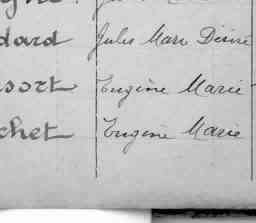 dard Jules Marc Désiré
ssort Eugène Marie
chet Eugène Marie